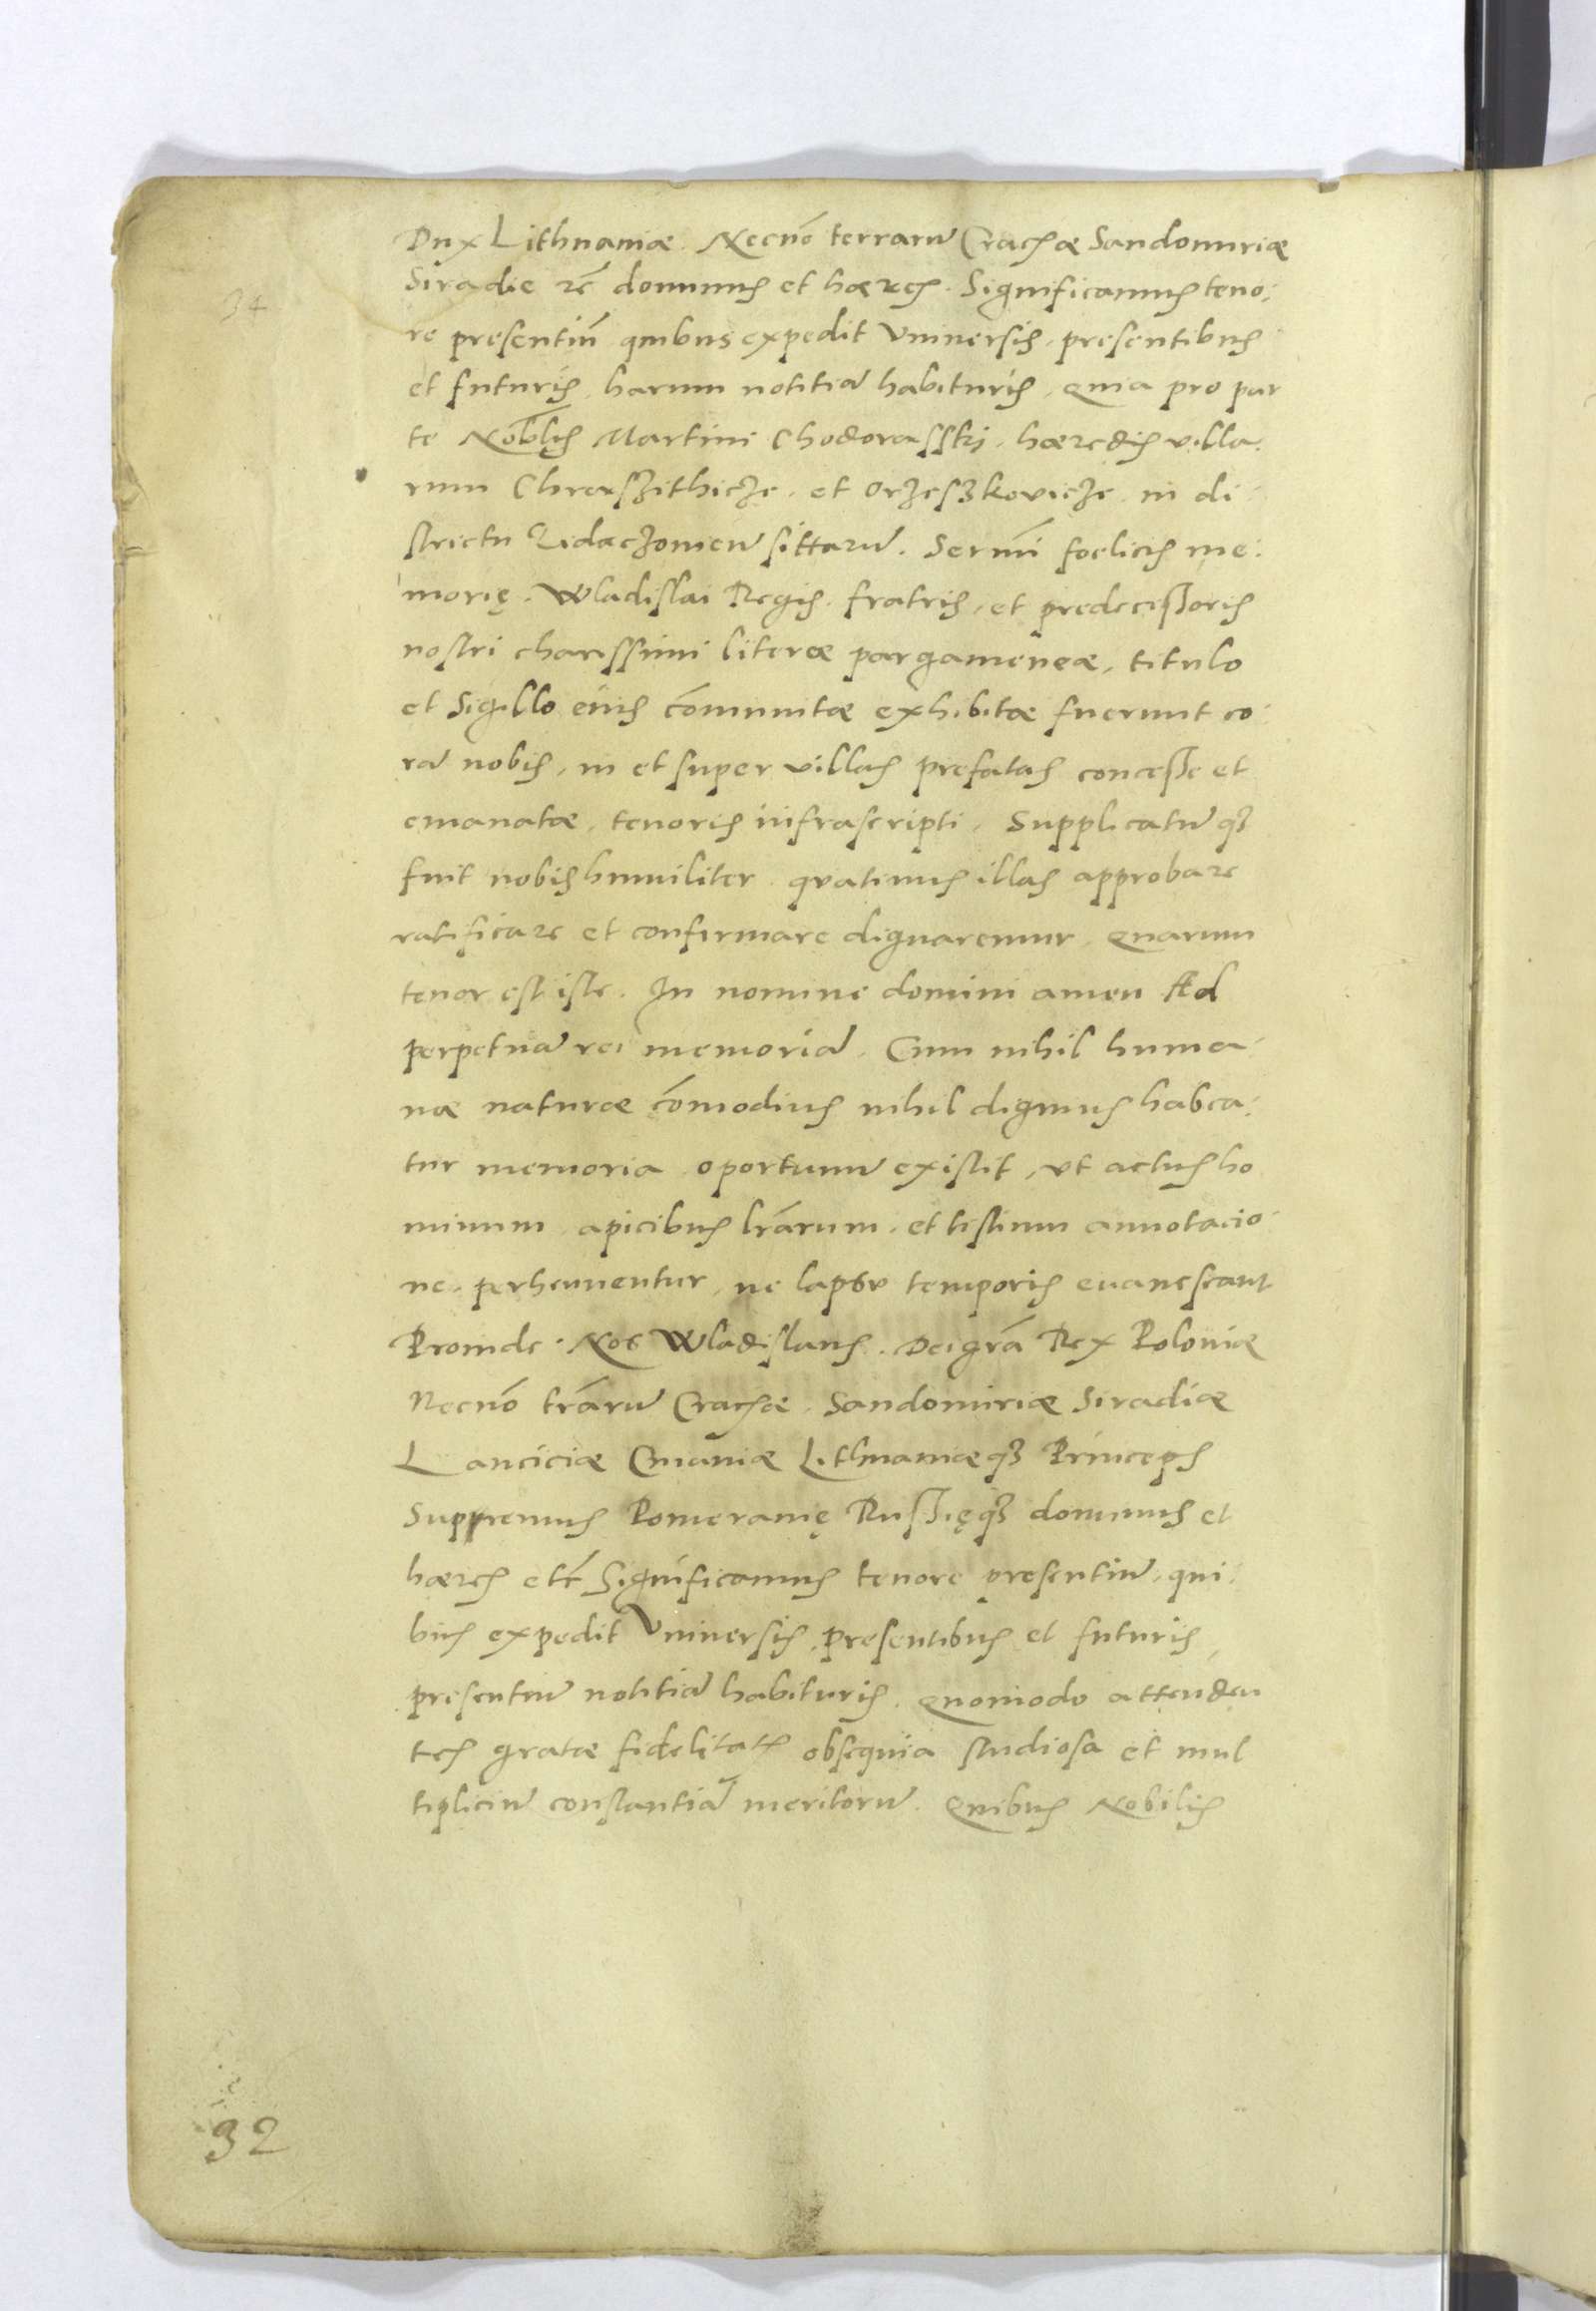 34
Dux Lithuaniæ. Necnõ terrarũ Cracħæ Sandomiriæ
Siradie zc̃ dominus et hæres. Significamus teno:
re presentiũ quibus expedit Vniuersis, presentibus
et futuris, harum notitiã habituris, Quia pro par
te Nob̃lis Martini Chodorasski, hæredis villa:
rum Chreszithicze, et Orzeszkovicze, in di:
strictu Zidaczouien̄ sittarũ. Serm̃i foelicis me:
morię. Wladislai Regis. fratris, et predecessoris
nostri charissimi literæ pargameneæ, titulo
et Sigillo eius cõmunitæ exhibitæ fuerunt co:
rã nobis, in et super villas prefatas concesse et
emanatæ, tenoris infrascripti, Supplicatũqȝ
fuit nobis humiliter quatinus illas approbare
ratificare et confirmare dignaremur, Quarum
tenor est iste. In nomine domini amen Ad
perpetuã rei memoriã. Cum nihil huma:
næ naturæ cõmodius nihil dignius habea:
tur memoria oportunũ existit, vt actus ho
minum apicibus lr̃arum et testium annotacio:
ne. perhennentur, ne lapsu temporis euanescant
Proinde. Nos Wladislaus. Dei gr̃a Rex Poloniæ
Necnõ tr̃arũ Cracħæ. Sandomiriæ Siradiæ
Lanciciæ Cuiauiæ Lithuaniæqȝ Princeps
Suppremus Pomeranię Russięqȝ dominus et
hæres etc̃ Significamus tenore presentiũ, qui:
bus expedit Vniuersis, presentibus et futuris,
presentiũ notitiã habituris, Quomodo attenden
tes gratæ fidelitatis obsequia studiosa et mul
tipliciũ constantiã meritorũ. Quibus Nobilis
32